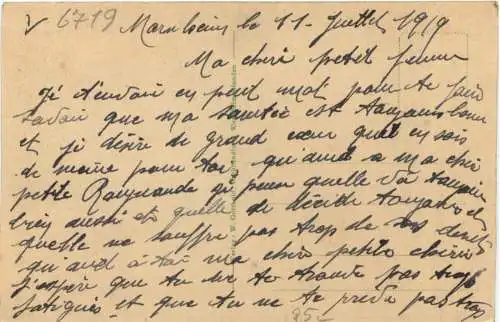 V 6719 Marnheim le 11 Juillet 1919
Ma cheri petet femme
Je t'envoie en peut mot pour te faire
savoir que ma santée est toujours bonne
et je désire de grand cœur qu'il en sois
de même pour toi qu'and a ma cher
petite Raymonde je pense quelle va toujour
bien aussi et quelle de décide toujour et
quelle ne souffre pas trop de ses dents
qu'and à toi ma cher petite chérie
j'espère que tu ne te trouve pas trop
fatiguée et que tu ne te prive pas trop
85c